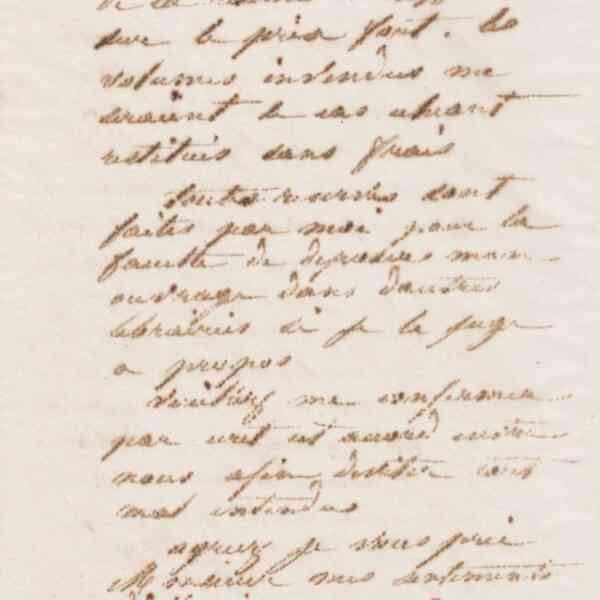 de la
sur le prix fort. les
volumes invendus me
seraient le cas échéant
restitués sans frais
toutes réserves sont
faites par moi pour la
faculté de déposer mon
ouvrage dans d'autres
librairies si je le juge
a propos
veuillez me confirmer
par écrit cet accord entre
nous afin d'éviter tout
mal entendu
agréez je vous prie
Monsieur mes sentiments